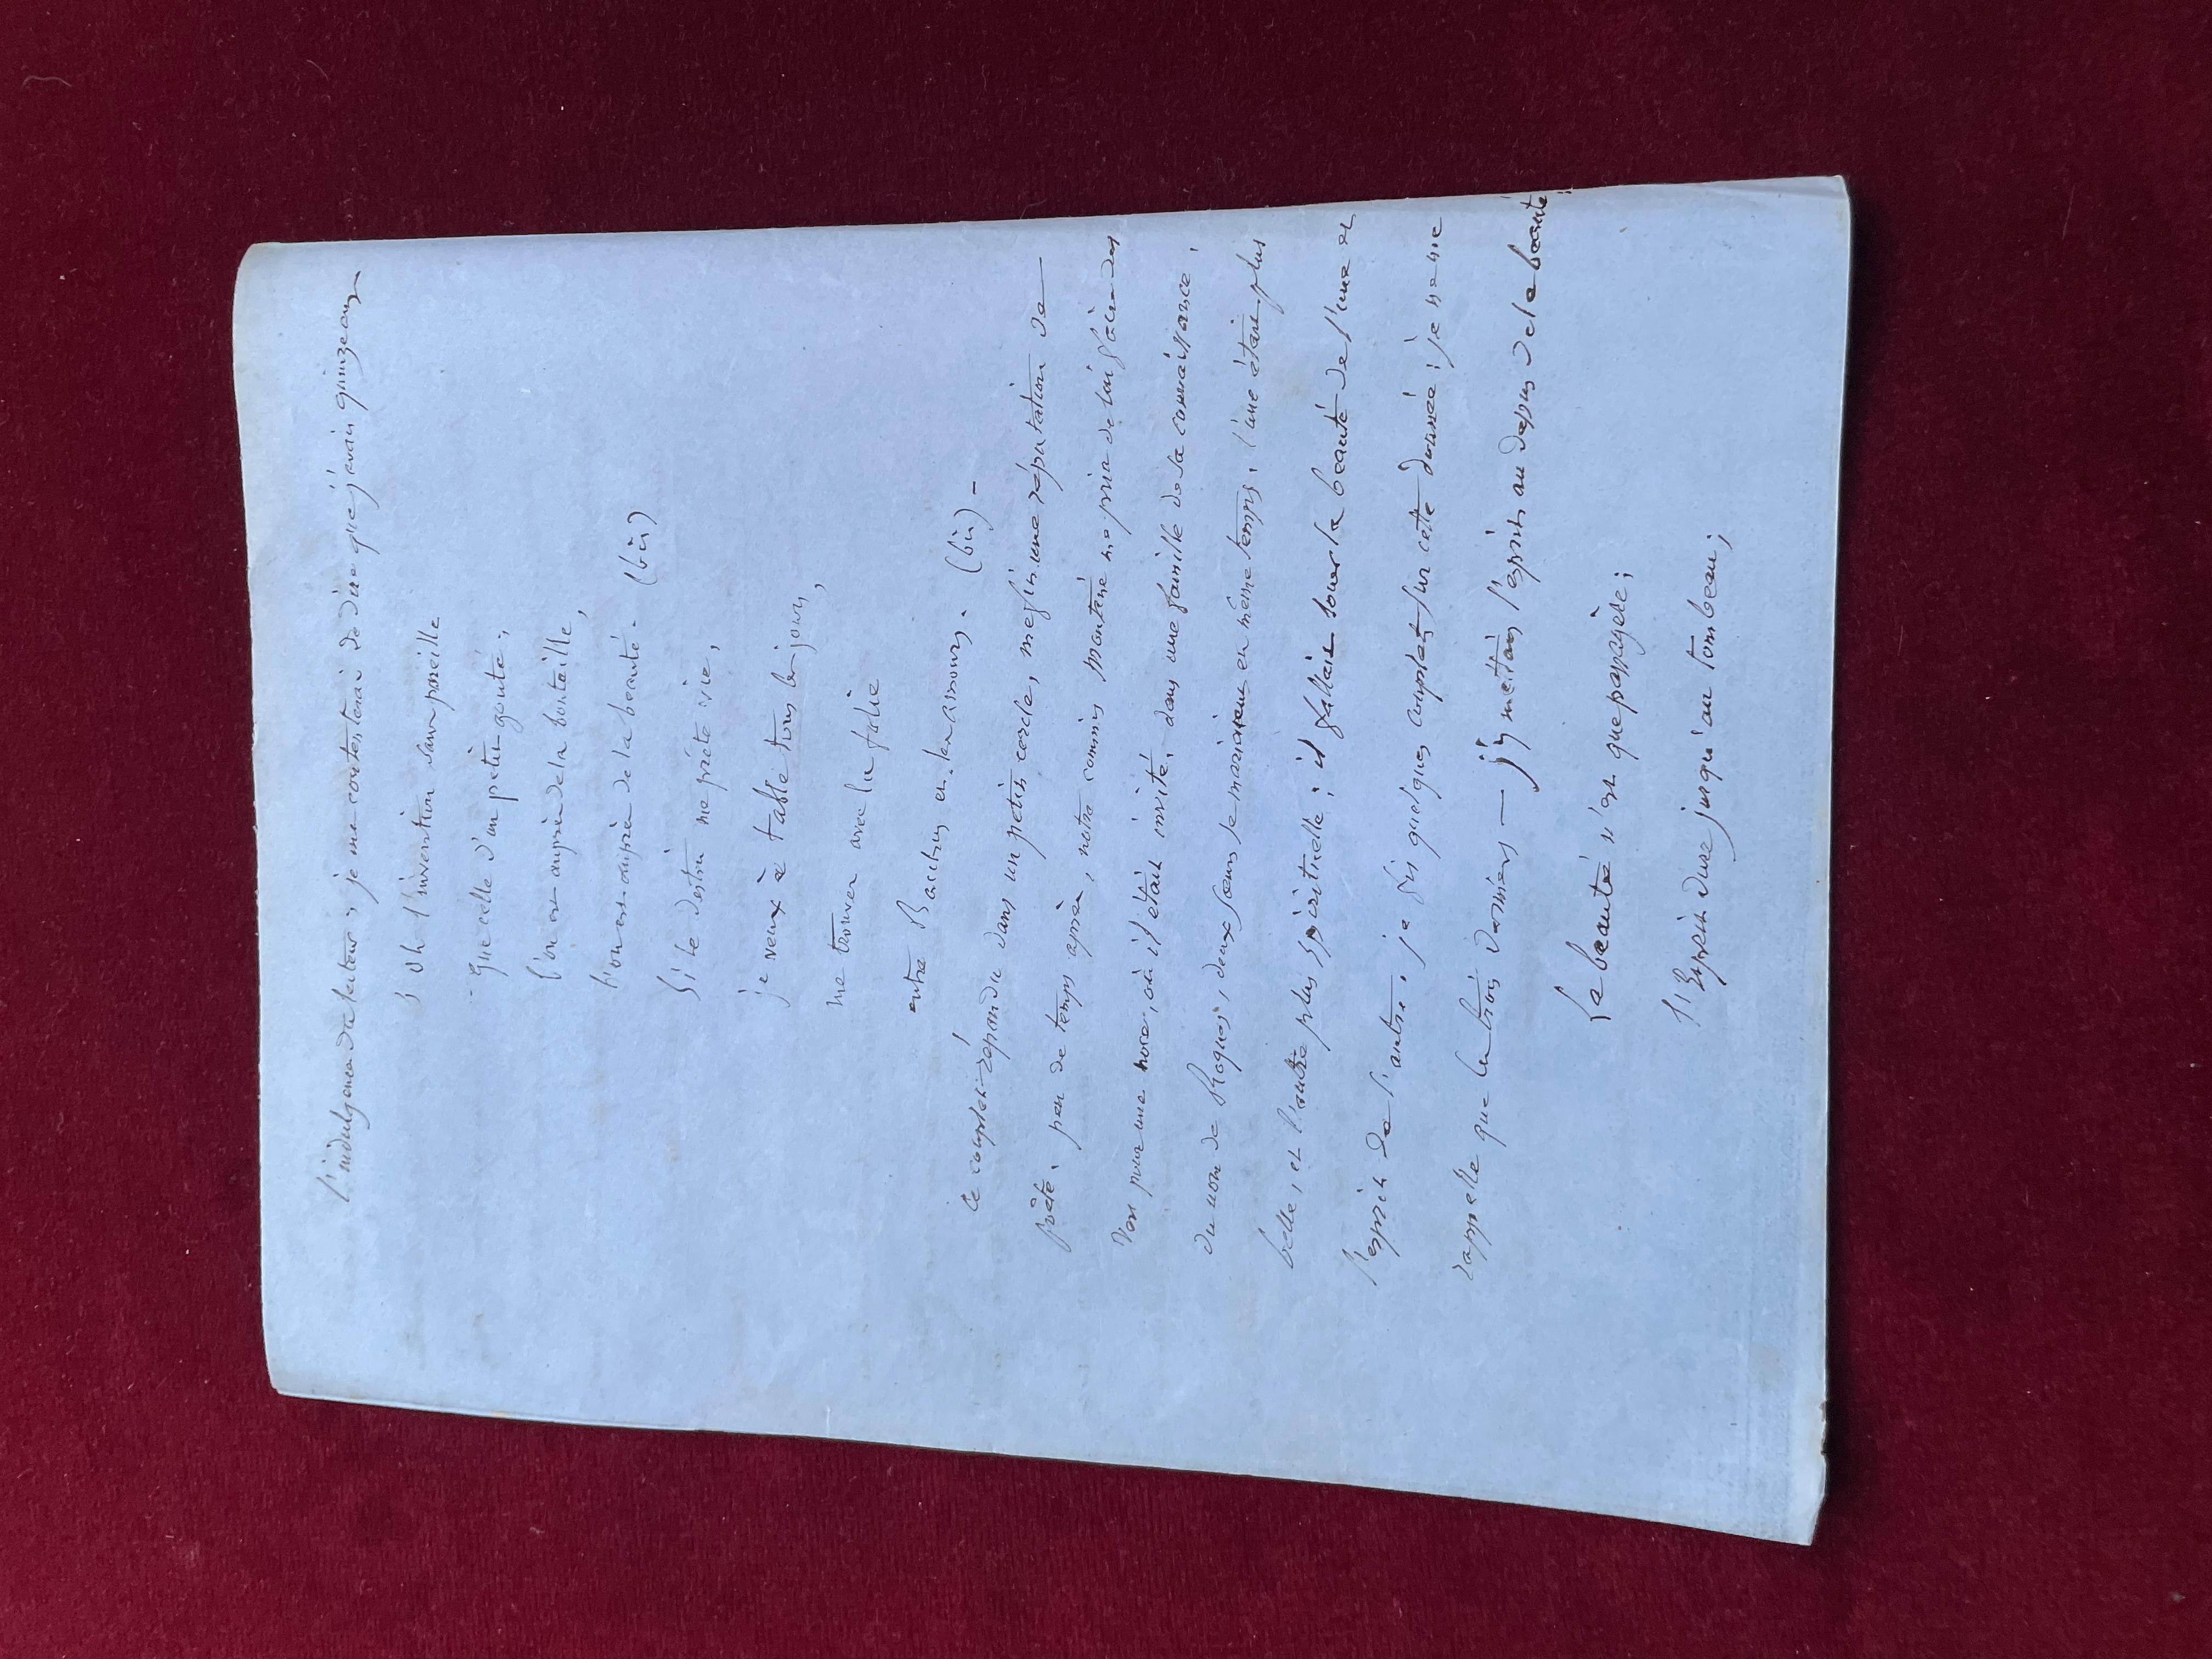 l'indulgence du lecteur; je me contenterai de dire que j'avais quinze ans
Oh l'invention sans pareille
que celle d'un petit goûté,
l'on est auprès de la bouteille,
l'on est auprès de la beauté. (bis)
Si le destin me prête vie,
je veux à table tous les jours,
me trouver avec la folie
entre Bacchus et les amours. (bis) -
Ce couplet répandu dans un petit cercle, me fit une réputation de
poète. peu de temps après, notre commis me pria de lui faire des
vers pour une noce, où il était invité, dans une famille de sa connaissance,
du nom de Roques, deux sœurs se mariaient en même temps, l'une était plus
belle, et l'autre plus spirituelle; il fallait louer la beauté de l'une et
l'esprit de l'autre. je fis quelques couplets sur cette donnée; je ne me
rappelle que les trois derniers — j'y mettais l'esprit au dessus de la beauté:
La beauté n'est que passagère;
l'Esprit dure jusqu'au tombeau;